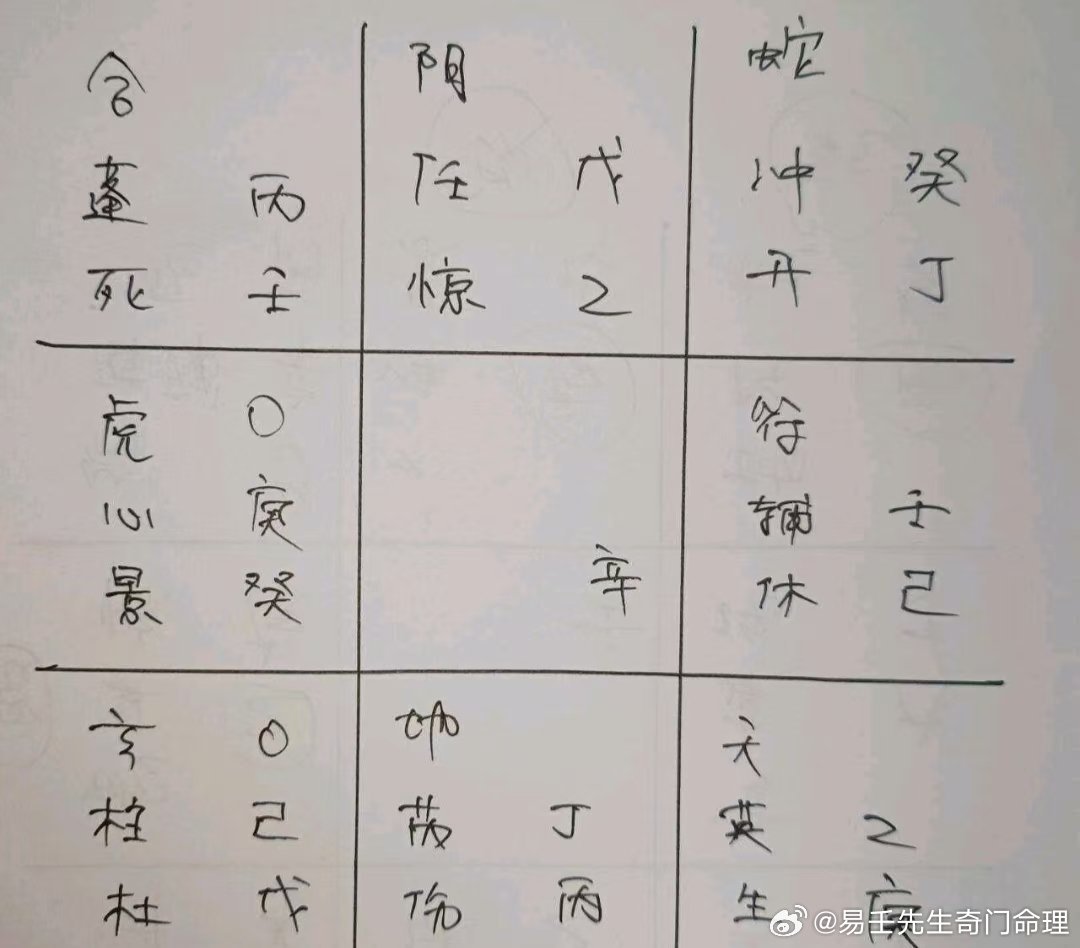 合
蓬 丙
死 壬
阴
任 戊
惊 乙
蛇
冲 癸
开 丁
虎 〇
心 庚
景 癸
辛
符
辅 壬
休 己
玄 〇
柱 己
杜 戊
地
芮 丁
伤 丙
天
英 乙
生 庚
@易壬先生奇门命理